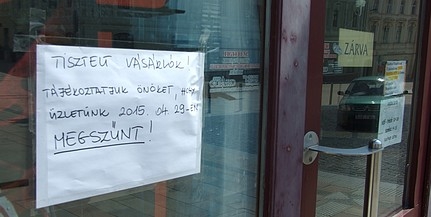 TISZTELT VÁSÁRLÓK!
TÁJÉKOZTATJUK ÖNÖKET, HOGY
ÜZLETÜNK 2015. 04. 29-ÉN
MEGSZŰNT!
ZÁRVA